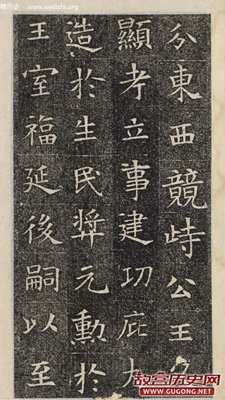 分東西競峙公王
顯考立事建功庇大
造於生民獎元勳於
王室福延後嗣以至
www.weilishi.org
故宫历史网